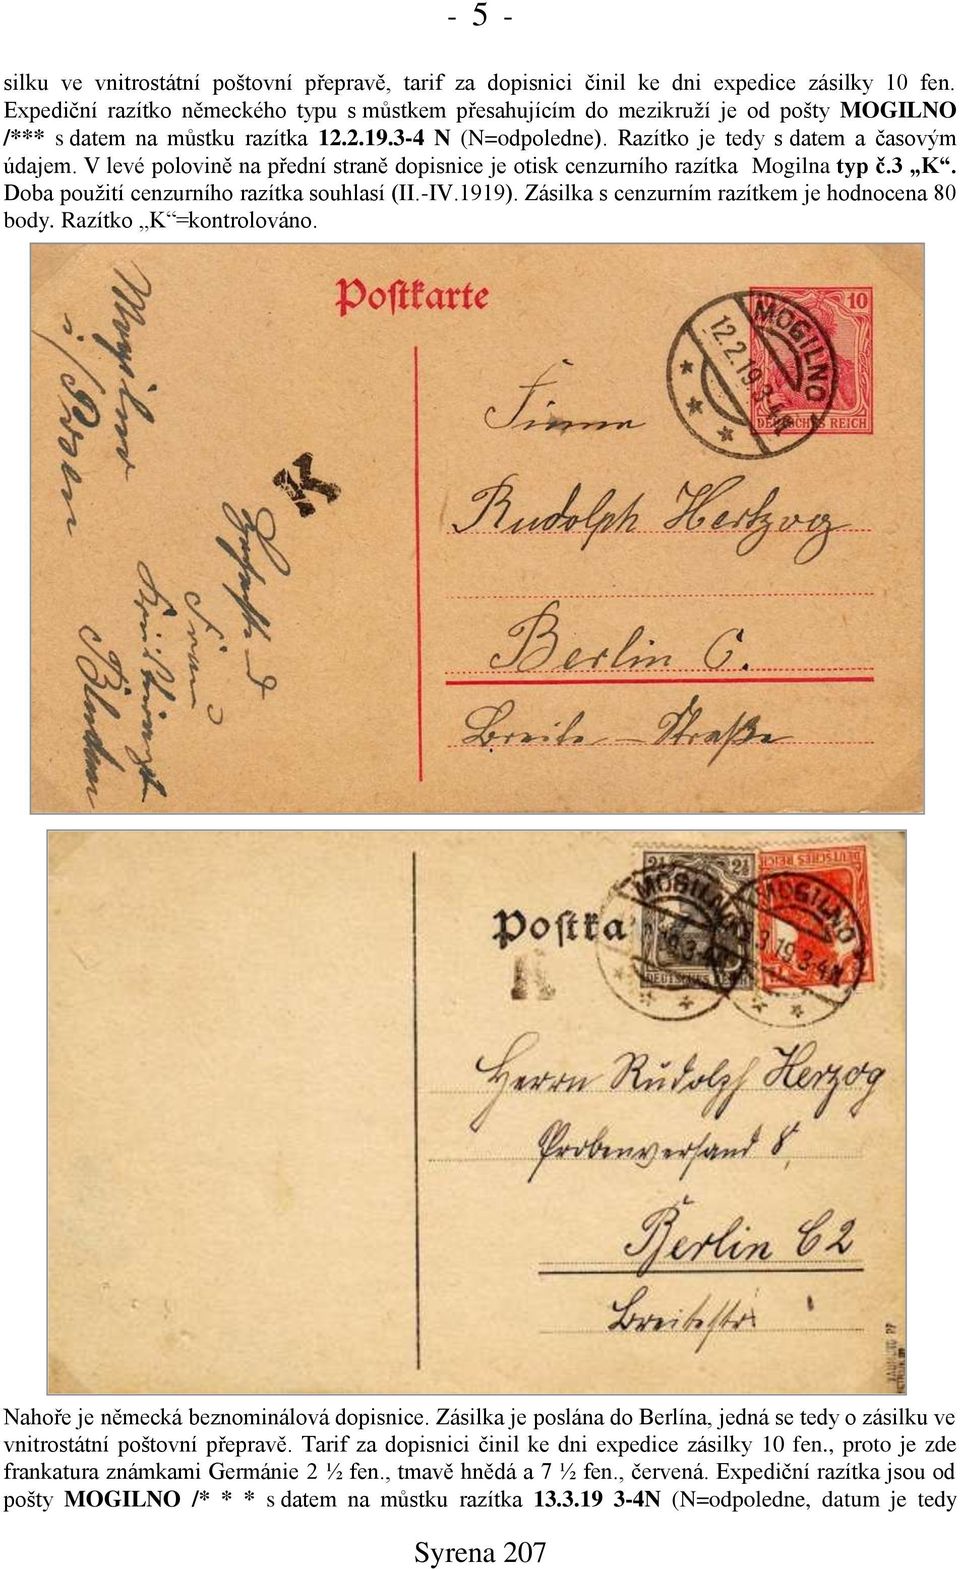 - 5 -
silku ve vnitrostátní poštovní přepravě, tarif za dopisnici činil ke dni expedice zásilky 10 fen.
Expediční razítko německého typu s můstkem přesahujícím do mezikruží je od pošty MOGILNO
/*** s datem na můstku razítka 12.2.19.3-4 N (N=odpoledne). Razítko je tedy s datem a časovým
údajem. V levé polovině na přední straně dopisnice je otisk cenzurního razítka Mogilna typ č.3 „K“.
Doba použití cenzurního razítka souhlasí (II.-IV.1919). Zásilka s cenzurním razítkem je hodnocena 80
body. Razítko „K“=kontrolováno.
Postkarte
10 10
DEUTSCHES REICH
MOGILNO
12.2.19.3-4N
* * * *
Mogilno
i/Posen
K
Firma
Rudolph Hertzog
Berlin C.
Breite-Straße
Postka
2½ 2½
DEUTSCHES REICH
DEUTSCHES REICH
MOGILNO
19.3-4N
MOGILNO
3.19.3-4N
K
Herrn Rudolph Herzog
Probenversand 8,
Berlin C2
Breitestr.
Nahoře je německá beznominálová dopisnice. Zásilka je poslána do Berlína, jedná se tedy o zásilku ve
vnitrostátní poštovní přepravě. Tarif za dopisnici činil ke dni expedice zásilky 10 fen., proto je zde
frankatura známkami Germánie 2 ½ fen., tmavě hnědá a 7 ½ fen., červená. Expediční razítka jsou od
pošty MOGILNO /* * * s datem na můstku razítka 13.3.19 3-4N (N=odpoledne, datum je tedy
Syrena 207